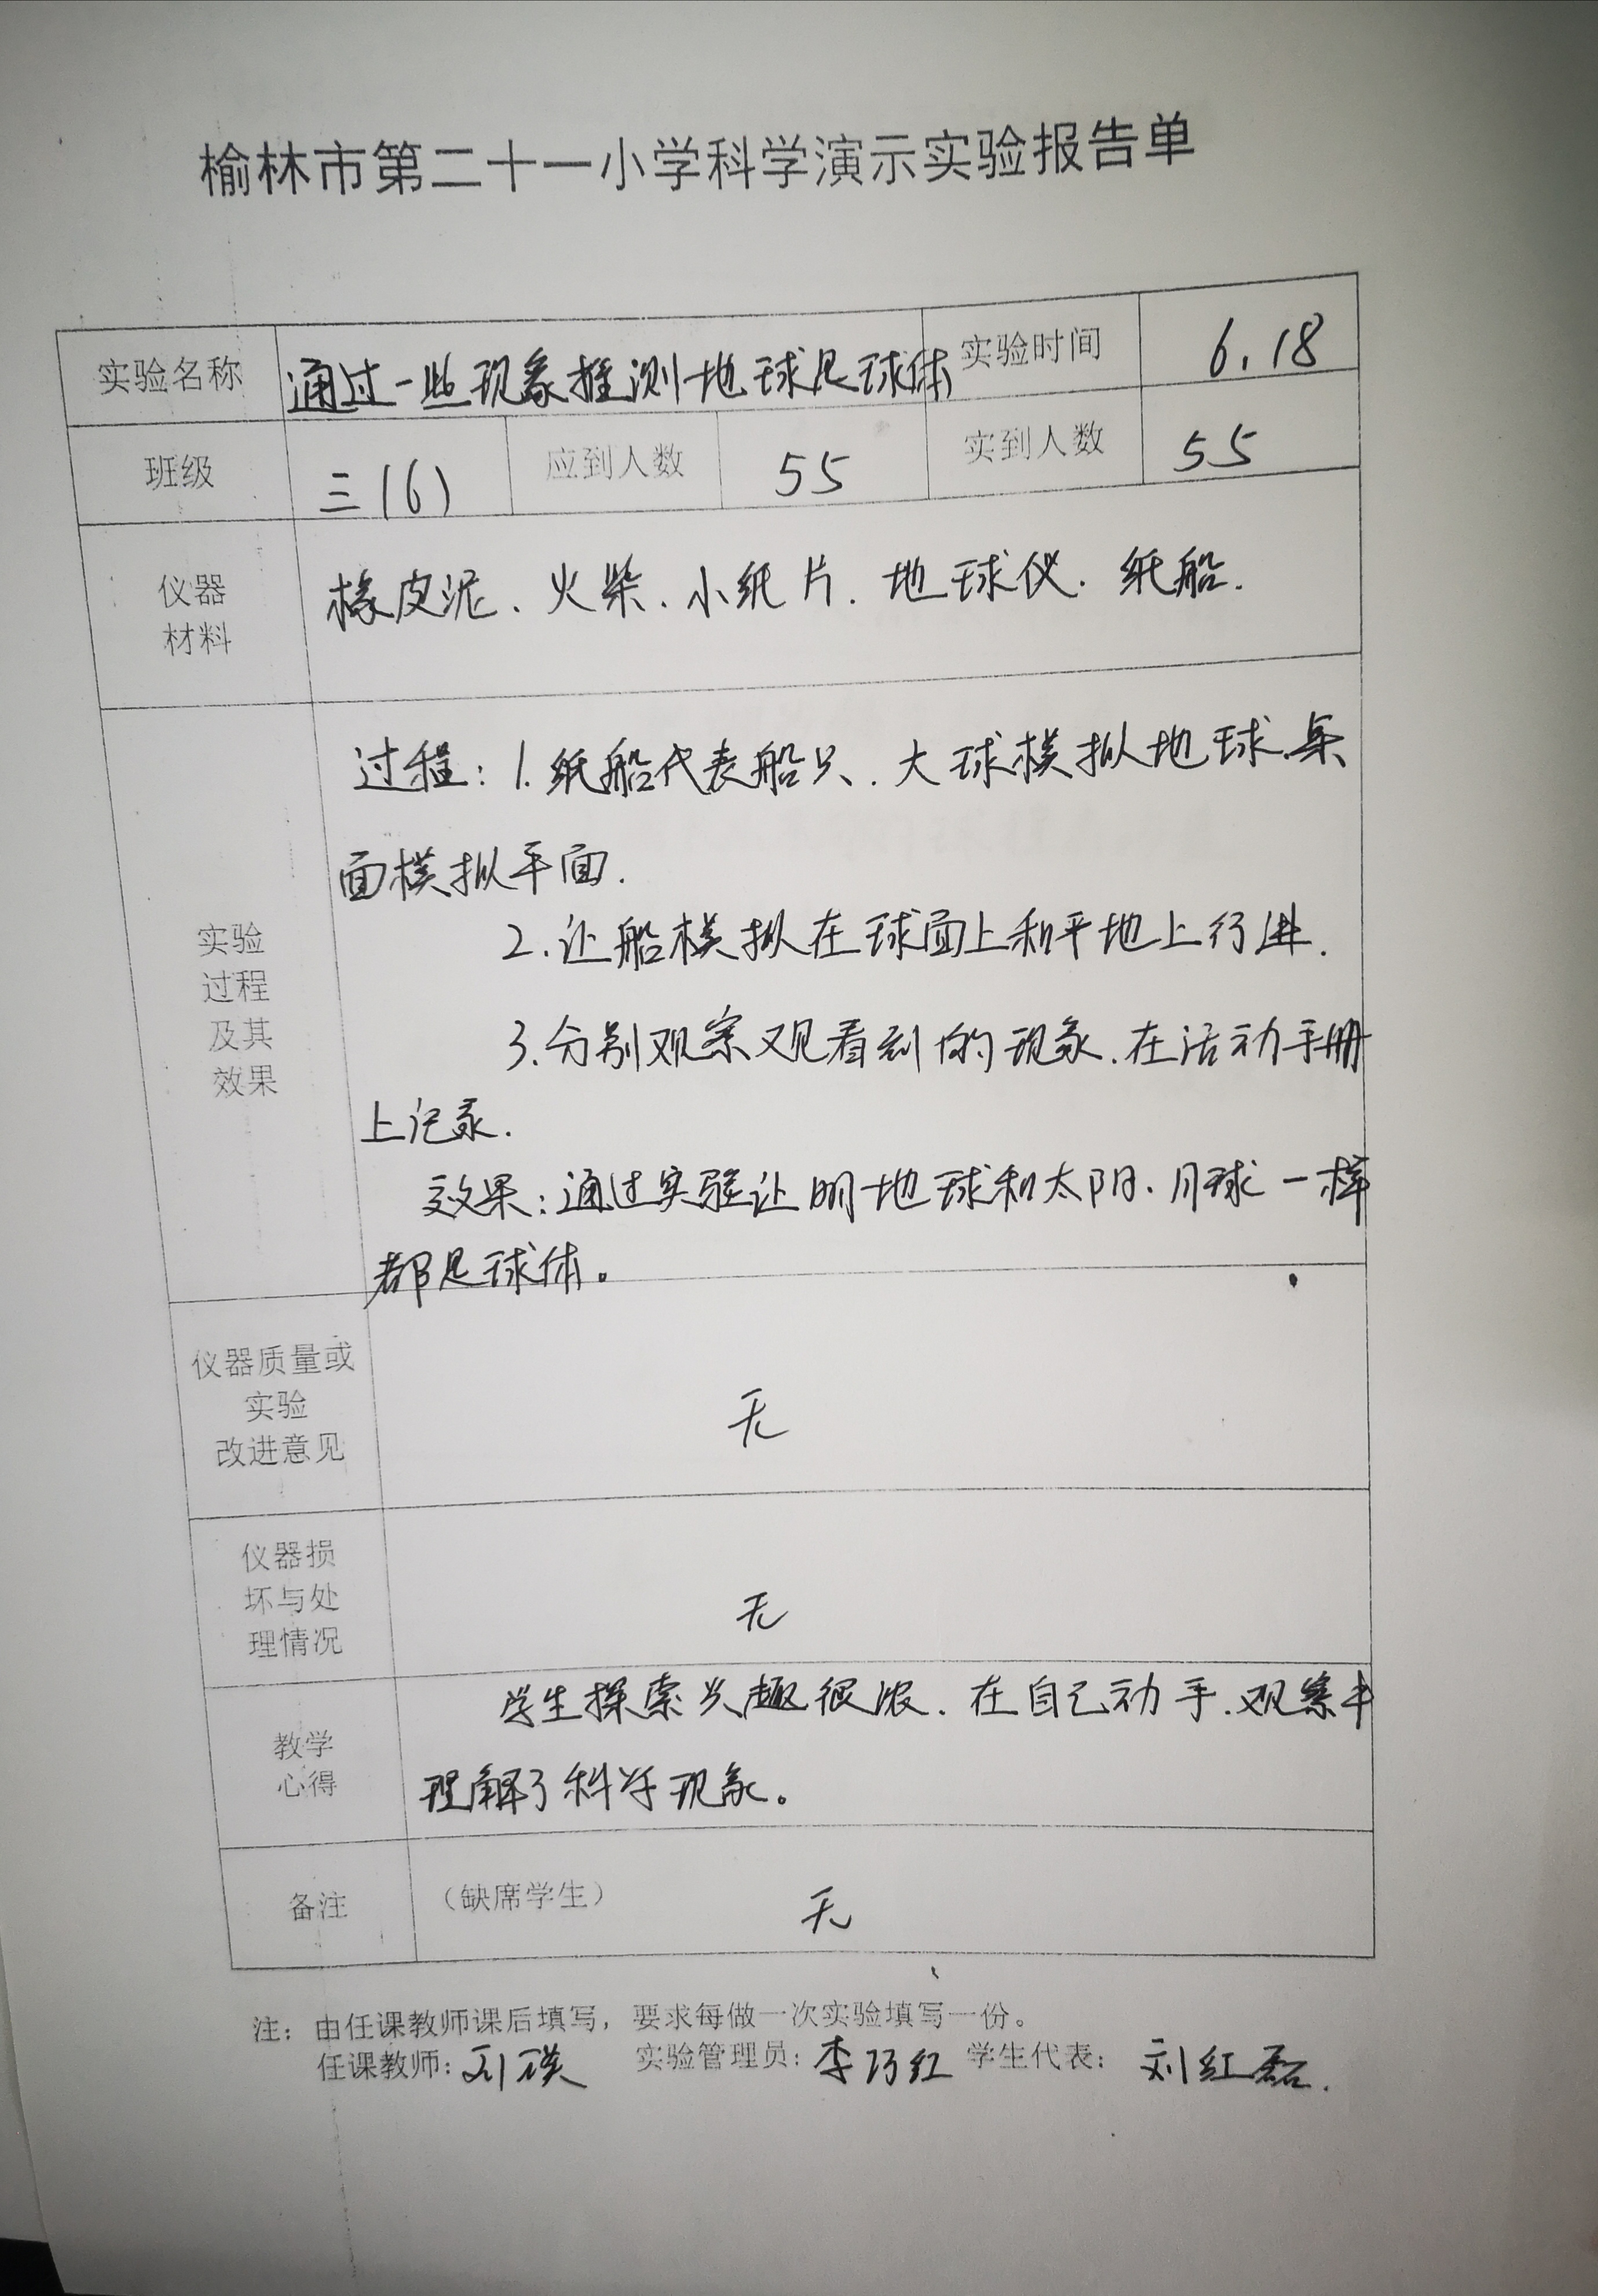 榆林市第二十一小学科学演示实验报告单
实验名称 通过一些现象推测地球是球体 实验时间 6.18
班级 三(6) 应到人数 55 实到人数 55
仪器
材料
橡皮泥、火柴、小纸片、地球仪、纸船.
实验
过程
及其
效果
过程：1.纸船代表船只、大球模拟地球、桌
面模拟平面.
2.让船模拟在球面上和平地上行进.
3.分别观察观看到的现象、在活动手册
上记录.
效果：通过实验让明地球和太阳、月球一样
都是球体。
仪器质量或
实验
改进意见
无
仪器损
坏与处
理情况
无
教学
心得
学生探索兴趣很浓、在自己动手、观察中
理解了科学现象。
备注 （缺席学生） 无
注：由任课教师课后填写，要求每做一次实验填写一份。
任课教师：刘瑛 实验管理员：李巧红 学生代表：刘红磊.